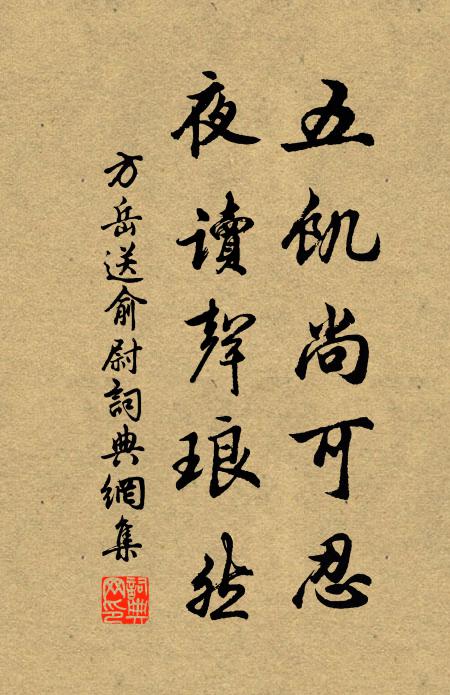 五飢尚可忍
夜讀聲琅然
方岳送俞尉詞典網集
詞典
网印